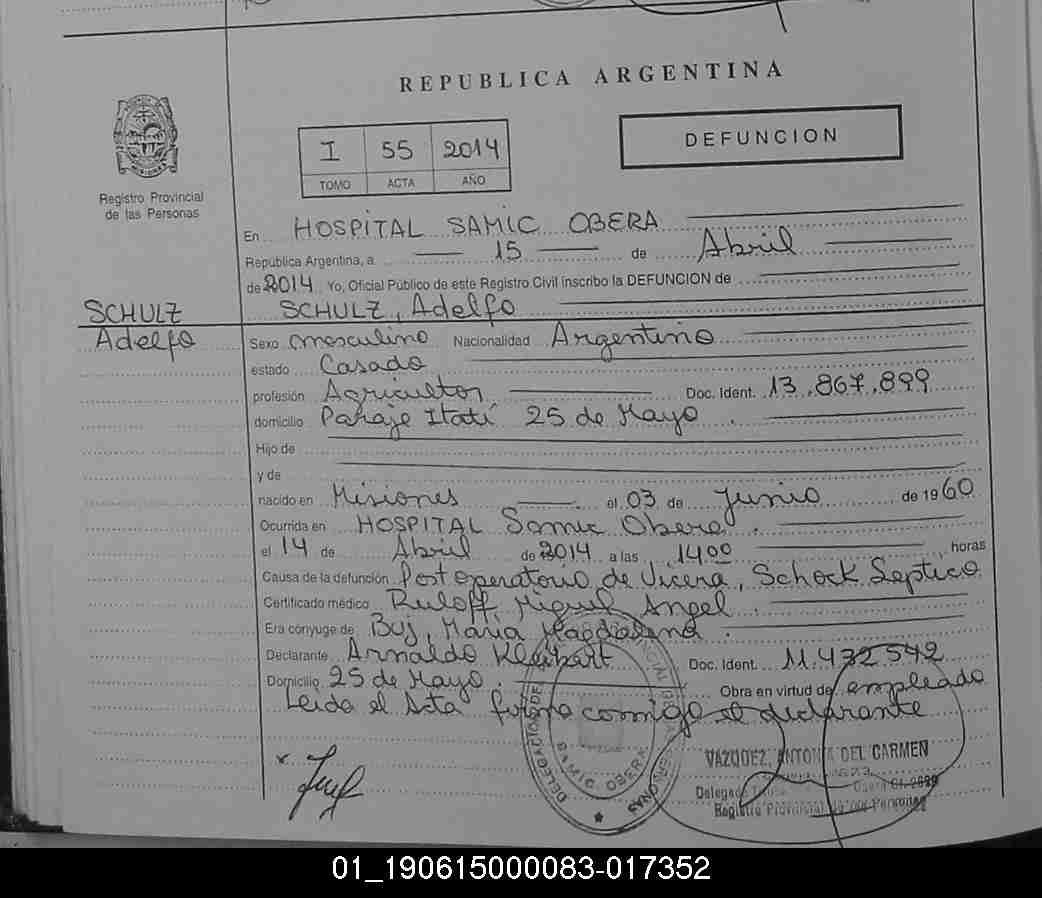 REPUBLICA ARGENTINA
I 55 2014
TOMO ACTA AÑO
DEFUNCION
Registro Provincial
de las Personas
En HOSPITAL SAMIC OBERA
República Argentina, a 15 de Abril
de 2014 Yo, Oficial Público de este Registro Civil inscribo la DEFUNCION de
SCHULZ
Adelfo
SCHULZ, Adelfo
Sexo masculino Nacionalidad Argentino
estado Casado
profesión Agricultor Doc. Ident. 13.867.899
domicilio Paraje Itatí 25 de Mayo.
Hijo de
y de
nacido en Misiones el 03 de Junio de 1960
Ocurrida en HOSPITAL Samic Obera.
el 14 de Abril de 2014 a las 14 00 horas
Causa de la defunción Post operatorio de Vicera, Schock Septico
Certificado médico Ruloff, Miguel Angel.
Era cónyuge de Buj, Maria Magdalena.
Declarante Arnaldo Doc. Ident. 11.432542
Domicilio 25 de Mayo. Obra en virtud de empleado
Leida el Acta firma conmigo el declarante
DELEGACION DE
SAMIC OBERA
VAZQUEZ, ANTONIA DEL CARMEN
Registro Provincial de las Personas
01_190615000083-017352